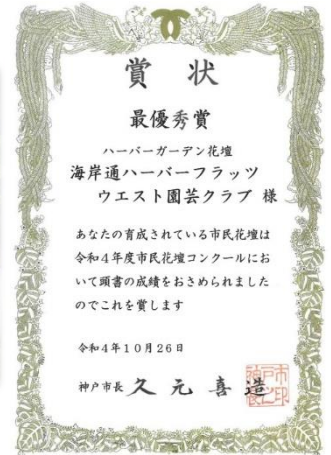 賞状
最優秀賞
ハーバーガーデン花壇
海岸通ハーバーフラッツ
ウエスト園芸クラブ 様
あなたの育成されている市民花壇は
令和4年度市民花壇コンクールにお
いて頭書の成績をおさめられました
のでこれを賞します
令和4年10月26日
神戸市長 久元喜造